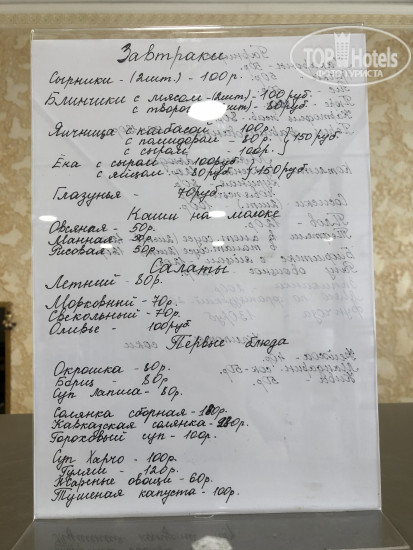 TOP Hotels
ФОТО ТУРИСТА
Завтраки
Сырники - (2шт.) - 100р.
Блинчики с мясом - (2шт) - 100 руб.
с творогом (2шт) - 80руб.
Яичница с колбасой 100р.
с помидорой - 80р. } 150 руб
с сыром - 100р.
Ёка с сыром 100руб.
с яйцом - 80руб } 150руб.
Глазунья - 70руб
Каши на молоке
Овсяная - 50р.
Манная - 50р.
Рисовая - 50р.
Салаты
Летний - 80р.
Морковный - 70р.
Свекольный - 70р.
Оливье - 100руб
Первые блюда
Окрошка - 80р.
Борщ - 80р
Суп лапша - 80р.
Солянка сборная - 180р.
Кавказская солянка -
Гороховый суп - 100р.
Суп Харчо - 100р.
Гуляш - 120р.
Жареные овощи - 60р.
Тушеная капуста - 100р.